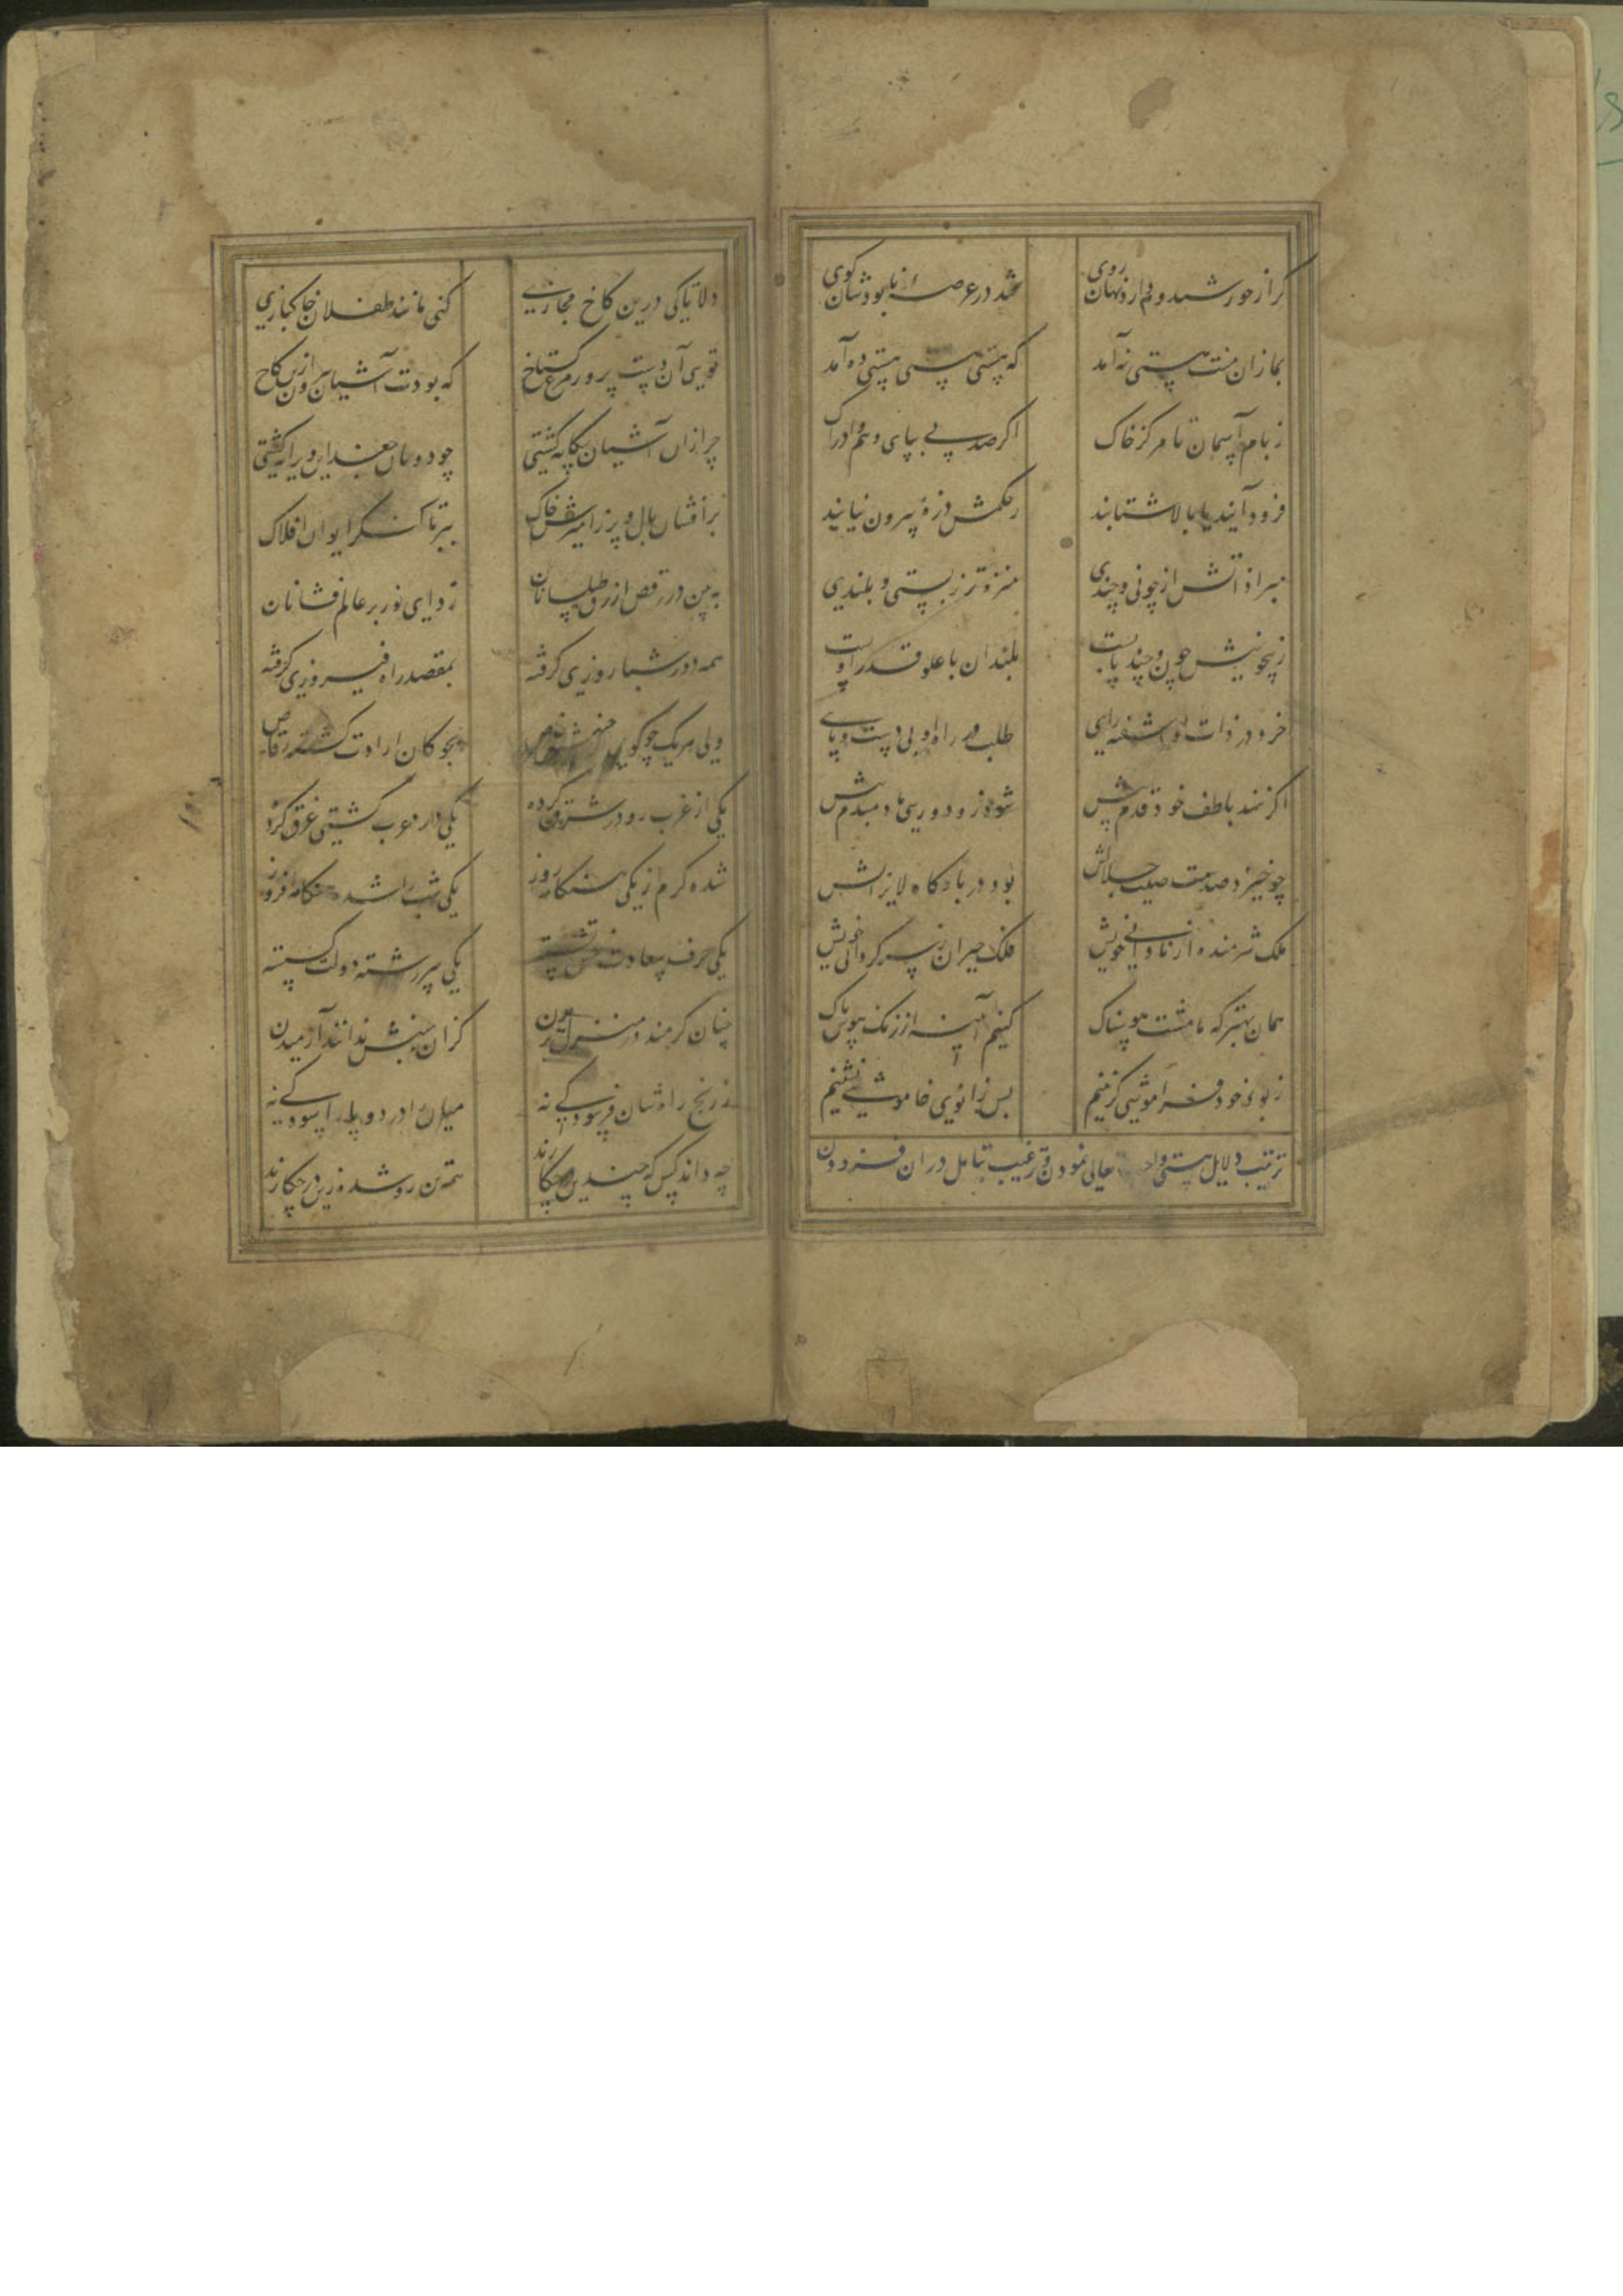 گر از خورشید و مه دارد نهان روی
فتد در عرصهٔ نابودشان گوی
بما زان منت هستی نه آمد
که هستی هستی هستی ده آمد
ز بام آسمان تا مرکز خاک
اگر صد پی بپای وهم و ادراک
فرود آیند یا بالا شتابند
ز حکمش ذرهٔ بیرون نیابند
مبرا ذاتش از چونی و چندی
منزه تر ز پستی و بلندی
ز بیچونیش چون و چند پست
بلندان با علو قدر او پست
خرد در ذات او آشفته رایی
طلب در راه او بی دست و پایی
اگر ننهد بلطف خود قدم پیش
شود زو دوری ما دمبدم بیش
چو خیزد صدمت صیت جلالش
بود در بارگاه لایزالش
ملک شرمنده از نادانی خویش
فلک حیران ز سرگردانی خویش
همان بهتر که ما مشت هوسناک
کنیم آیینه از زنگ هوس پاک
ز بود خود فراموشی گزینیم
پس زانوی خاموشی نشینیم
ترتیب دلایل هستی واجب تعالی نمودن و ترغیب تامل در آن فزودن
دلا تا کی درین کاخ مجازی
کنی مانند طفلان خاکبازی
تویی آن دست پرور مرغ گستاخ
که بودت آشیان بیرون ازین کاخ
چرا زان آشیان بیگانه گشتی
چو دونان جغد این ویرانه گشتی
بر افشان بال و پر ز آمیزش خاک
بپر تا کنگر ایوان افلاک
ببین در رقص ازرق طیلسانان
ردای نور بر عالم فشانان
همه دور شباروزی گرفته
بمقصد راه فیروزی گرفته
ولی هر یک چو گویی
بچوگان ارادت گشته رقاص
یکی از غرب رو در شرق کرده
یکی دارد غرب کشتی غرق کرده
شده گرم از یکی هنگامه روز
یکی شب را شده هنگامه افروز
یکی حرف سعادت نقش بسته
یکی سررشته دولت گسسته
چنان گرمند در منزل بریدن
کزان جنبش ندانند آرمیدن
ز رنج راهشان فرسودگی نه
میان را درد و پا را سودگی نه
چه داند کس که چندین در چه کارند
همه تن رو شده رو در چه کارند